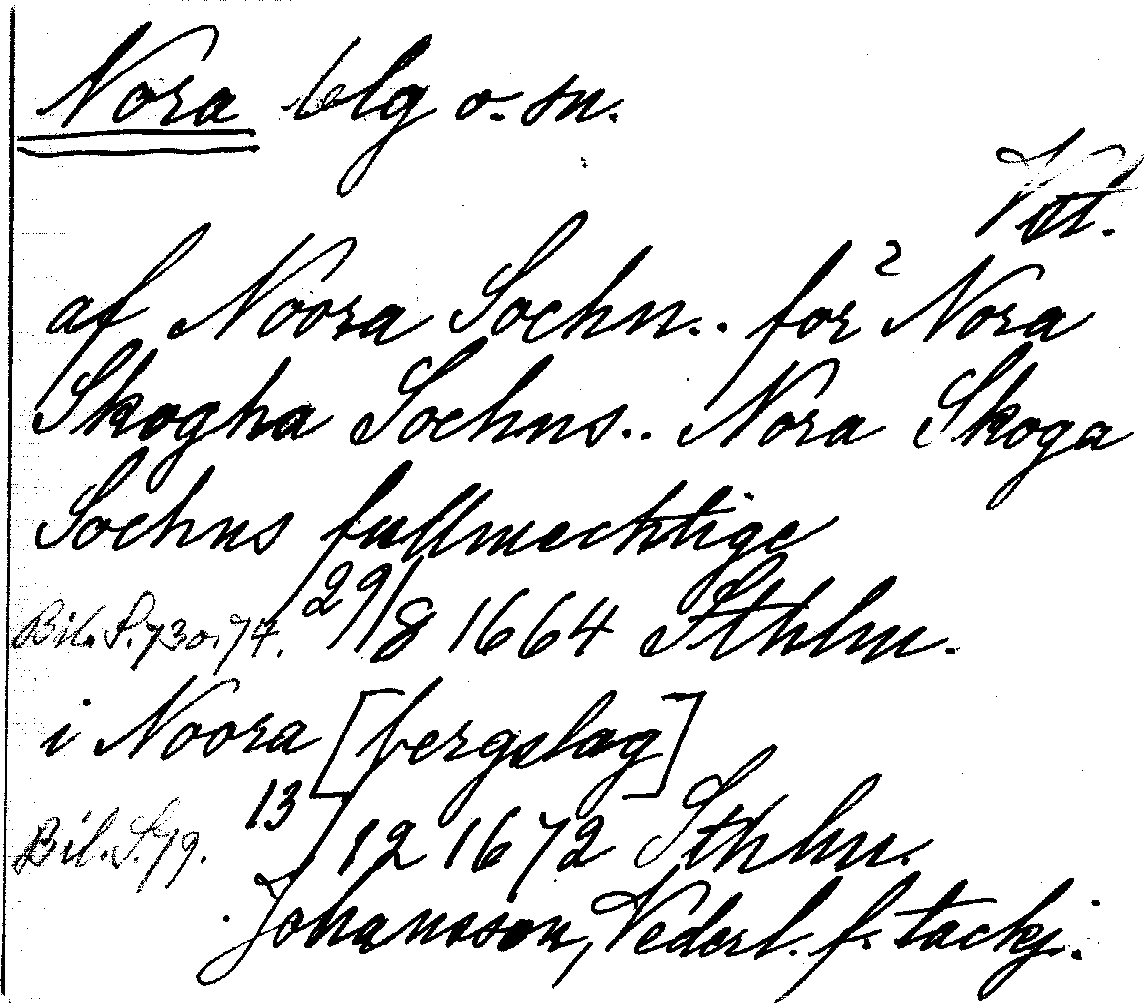 Nora blg o. sn.
Vtt.
af Noora Sochn.. for 2 Nora
Skogha Sochns.. Nora Skoga
Sochns fullmechtige
Bil. S. 73 o. 74. 29/8 1664 Sthlm.
i Noora [bergslag]
Bil. S. 79. 13/12 1672 Sthlm.
Johansson, Vederl. f. tackj.